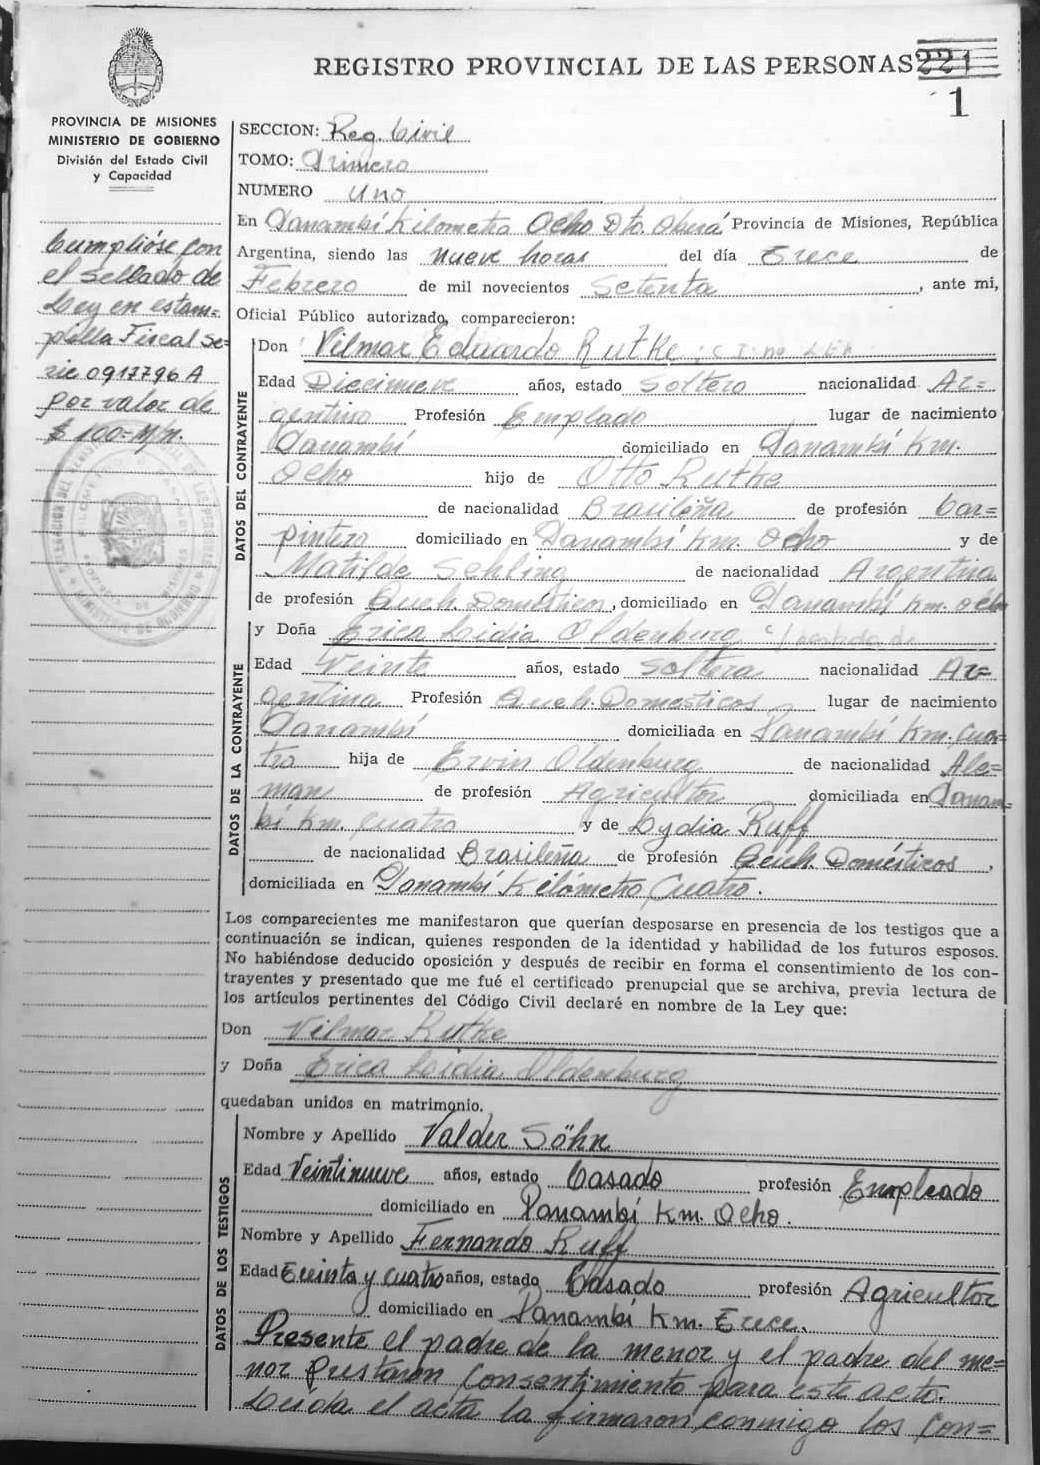 REGISTRO PROVINCIAL DE LAS PERSONAS 221
1
PROVINCIA DE MISIONES
MINISTERIO DE GOBIERNO
División del Estado Civil
y Capacidad
Cumplióse con
el sellado de
Ley en estam=
pilla Fiscal se=
rie 0917796 A
por valor de
$ 100=M/N.
SECCION: Reg. Civil
TOMO: Primero
NUMERO Uno
En Panambí Kilometro Ocho Dto. Oberá Provincia de Misiones, República
Argentina, siendo las nueve horas del día Trece de
Febrero de mil novecientos Setenta, ante mi,
Oficial Público autorizado, comparecieron:
DATOS DEL CONTRAYENTE
Don Vilmar Eduardo Rutke
Edad Diecinueve años, estado Soltero nacionalidad Ar=
gentino Profesión Empleado lugar de nacimiento
Panambí domiciliado en Panambí Km.
Ocho hijo de Otto Rutke
de nacionalidad Brasileña de profesión Car=
pintero domiciliado en Panambí Km. Ocho y de
Matilde Sehling de nacionalidad Argentina
de profesión Queh. Domésticos, domiciliado en Panambí Km. Ocho
DATOS DE LA CONTRAYENTE
y Doña Erica Lidia Oldenburg
Edad Veinte años, estado Soltera nacionalidad Ar=
gentina Profesión Queh. Domesticos lugar de nacimiento
Panambí domiciliada en Panambí Km. Cua=
tro hija de Ervin Oldenburg de nacionalidad Ale=
man de profesión Agricultor domiciliada en Panam=
bí Km. Cuatro y de Lydia Ruff
de nacionalidad Brasileña de profesión Queh. Domésticos,
domiciliada en Panambí Kilómetro Cuatro.
Los comparecientes me manifestaron que querían desposarse en presencia de los testigos que a
continuación se indican, quienes responden de la identidad y habilidad de los futuros esposos.
No habiéndose deducido oposición y después de recibir en forma el consentimiento de los con-
trayentes y presentado que me fué el certificado prenupcial que se archiva, previa lectura de
los artículos pertinentes del Código Civil declaré en nombre de la Ley que:
Don Vilmar Rutke
y Doña Erica Lidia Oldenburg
quedaban unidos en matrimonio.
DATOS DE LOS TESTIGOS
Nombre y Apellido Valder Söhn
Edad Veintinueve años, estado Casado profesión Empleado
domiciliado en Panambí Km. Ocho.
Nombre y Apellido Fernando Ruff
Edad Treinta y cuatro años, estado Casado profesión Agricultor
domiciliado en Panambí Km. Trece.
Presente el padre de la menor y el padre del me=
nor prestaron consentimiento para este acto.
Leída el acta la firmaron conmigo los con=